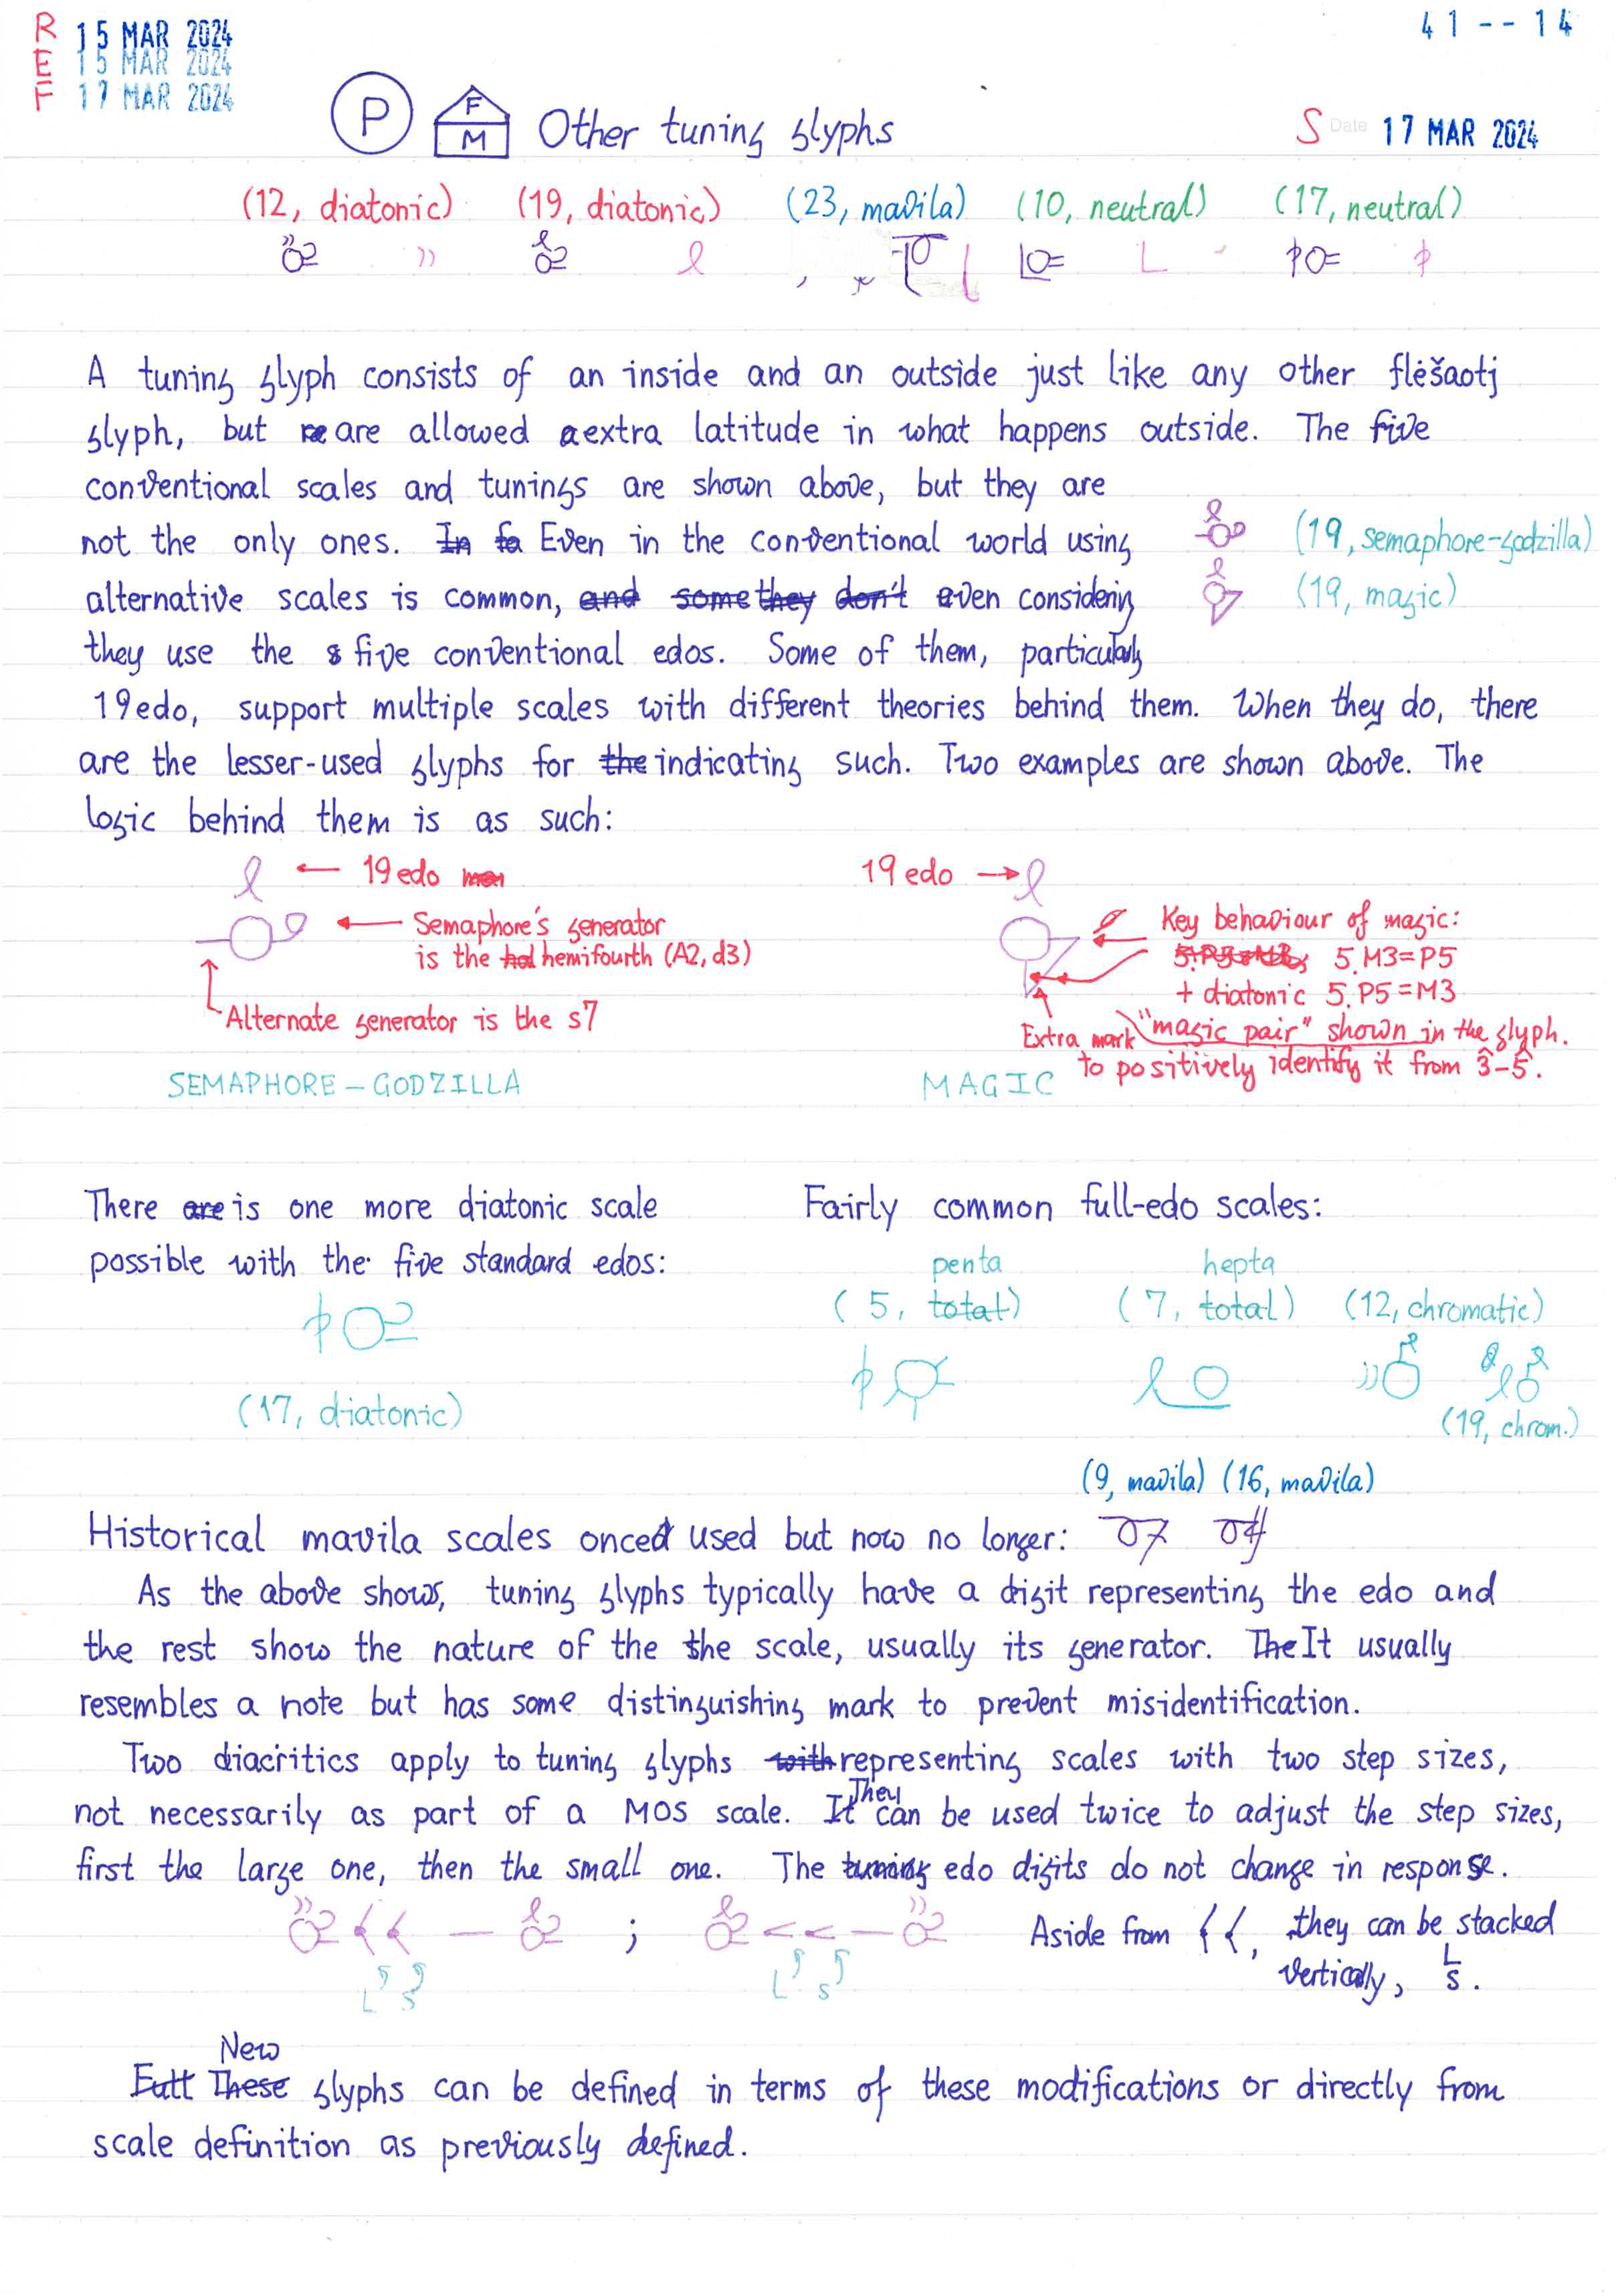 REF 15 MAR 2024
15 MAR 2024
17 MAR 2024
41 -- 14
P F M Other tuning glyphs
S Date 17 MAR 2024
(12, diatonic) (19, diatonic) (23, mavila) (10, neutral) (17, neutral)
A tuning glyph consists of an inside and an outside just like any other flėšaotj
glyph, but are allowed extra latitude in what happens outside. The five
conventional scales and tunings are shown above, but they are
not the only ones. In fa Even in the conventional world using
(19, semaphore-godzilla)
alternative scales is common, and some they don't even considering
(19, magic)
they use the five conventional edos. Some of them, particularly
19edo, support multiple scales with different theories behind them. When they do, there
are the lesser-used glyphs for the indicating such. Two examples are shown above. The
logic behind them is as such:
← 19 edo
← Semaphore's generator
is the hemifourth (A2, d3)
Alternate generator is the s7
SEMAPHORE – GODZILLA
19 edo →
Key behaviour of magic:
5.M3=P5
+ diatonic 5.P5=M3
"magic pair" shown in the glyph.
Extra mark
to positively identify it from 3̂-5̂.
MAGIC
There are is one more diatonic scale
possible with the five standard edos:
(17, diatonic)
Fairly common full-edo scales:
penta hepta
(5, total) (7, total) (12, chromatic)
(19, chrom.)
(9, mavila) (16, mavila)
Historical mavila scales once used but now no longer:
As the above shows, tuning glyphs typically have a digit representing the edo and
the rest show the nature of the the scale, usually its generator. The It usually
resembles a note but has some distinguishing mark to prevent misidentification.
Two diacritics apply to tuning glyphs with representing scales with two step sizes,
They
not necessarily as part of a MOS scale. It can be used twice to adjust the step sizes,
first the large one, then the small one. The tuning edo digits do not change in response.
; Aside from , they can be stacked
L S L S vertically, L
S.
New
Futt These glyphs can be defined in terms of these modifications or directly from
scale definition as previously defined.